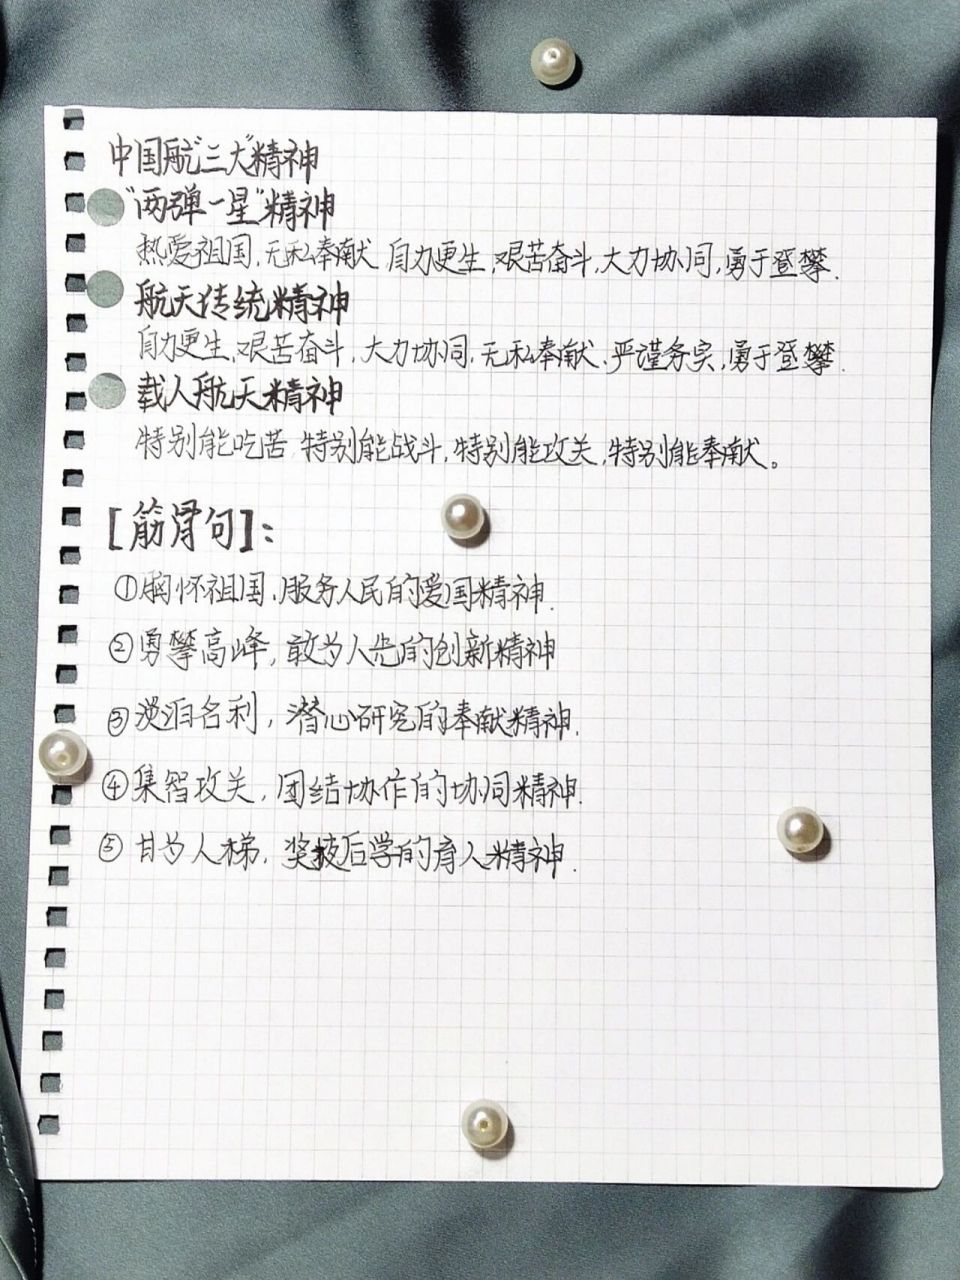 中国航“三大”精神
“两弹一星”精神
热爱祖国,无私奉献 自力更生,艰苦奋斗,大力协同,勇于登攀.
航天传统精神
自力更生、艰苦奋斗,大力协同.无私奉献、严谨务实,勇于登攀.
载人航天精神
特别能吃苦 特别能战斗,特别能攻关,特别能奉献。
[筋骨句]:
①胸怀祖国,服务人民的爱国精神.
②勇攀高峰,敢为人先的创新精神
③淡泊名利,潜心研究的奉献精神.
④集智攻关,团结协作的协同精神.
⑤甘为人梯,奖掖后学的育人精神.